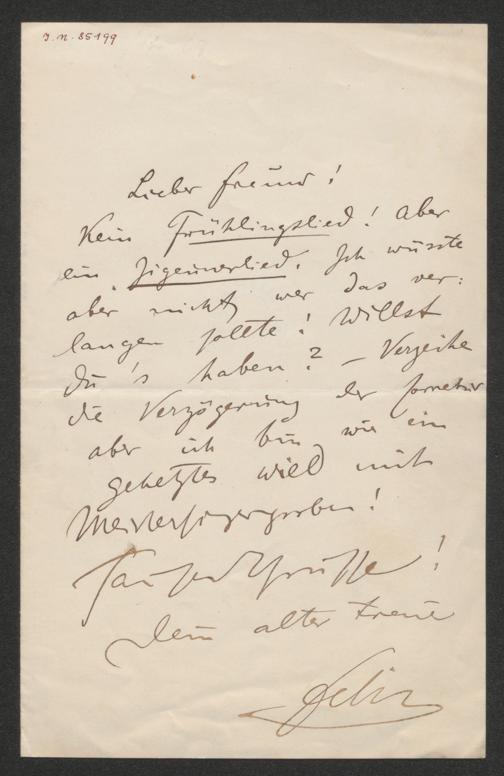 I. N. 85199
Lieber Freund!
Kein Frühlingslied! Aber
ein Zigeunerlied. Ich wusste
aber nicht, wer das ver:
langen sollte! Willst
du's haben? – Verzeihe
die Verzögerung der
aber ich bin, wie ein
gehetztes Wild mit
Meistersingerproben!
Tausend Grüsse!
Dein alter treuer
Felix